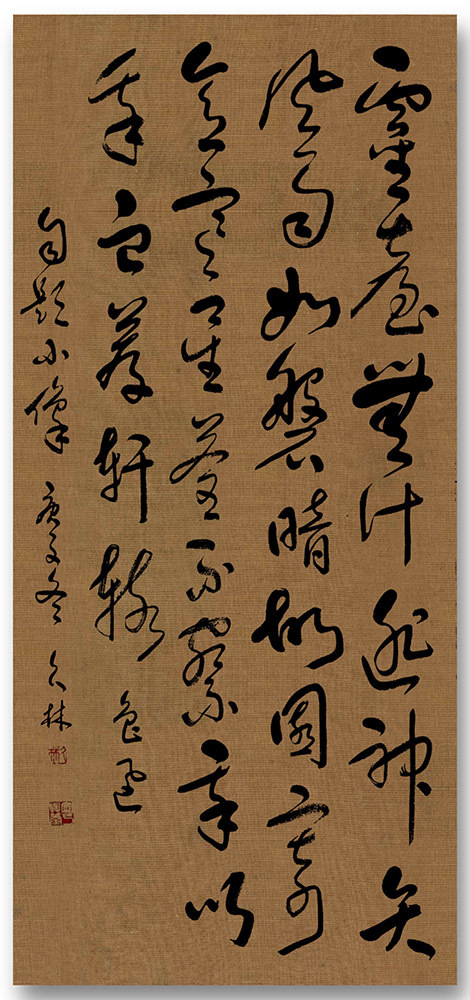 靈臺無計逃神矢
風雨如磐暗故園寄
意寒星荃不察我以
我血薦軒轅 魯迅
自題小像 庚子冬 林